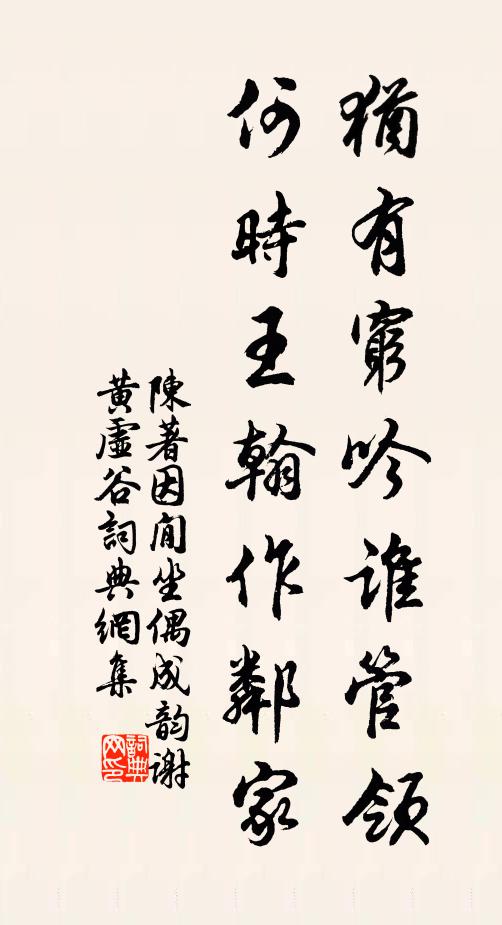 猶有窮吟誰管領
何時王翰作鄰家
陳著因閒坐偶成韵謝
黃虛谷詞典網集
詞典
网印